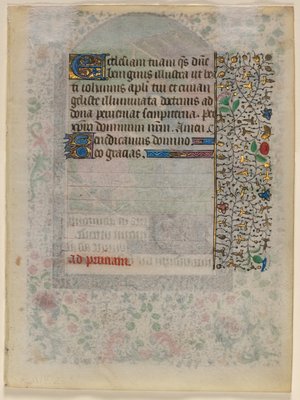 Ecclesiam tuam qs dne
benignus illustra ut be
ti iohannis apli tui et euuan
geliste illuminata doctrinis ad
dona perueniat sempiterna. Per
xpm dominum nrm. Amen.
Benedicamus domino
eo gracias.
ad primam.